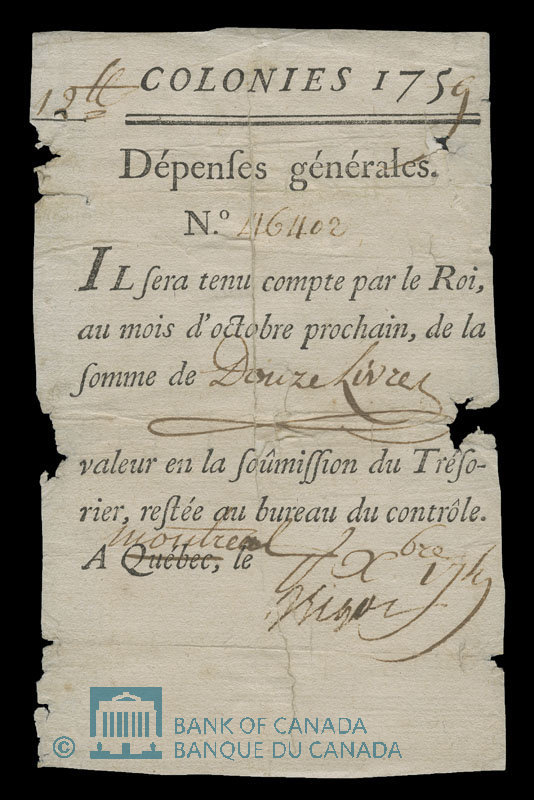 12ll COLONIES 1759
Dépenſes générales.
N.º 46402
IL ſera tenu compte par le Roi,
au mois d'octobre prochain, de la
ſomme de Douze Livres
valeur en la ſoûmiſſion du Tréſo-
rier, reſtée au bureau du contrôle.
montreal
A Québec, le Xbre
Bigot
© BANK OF CANADA
BANQUE DU CANADA